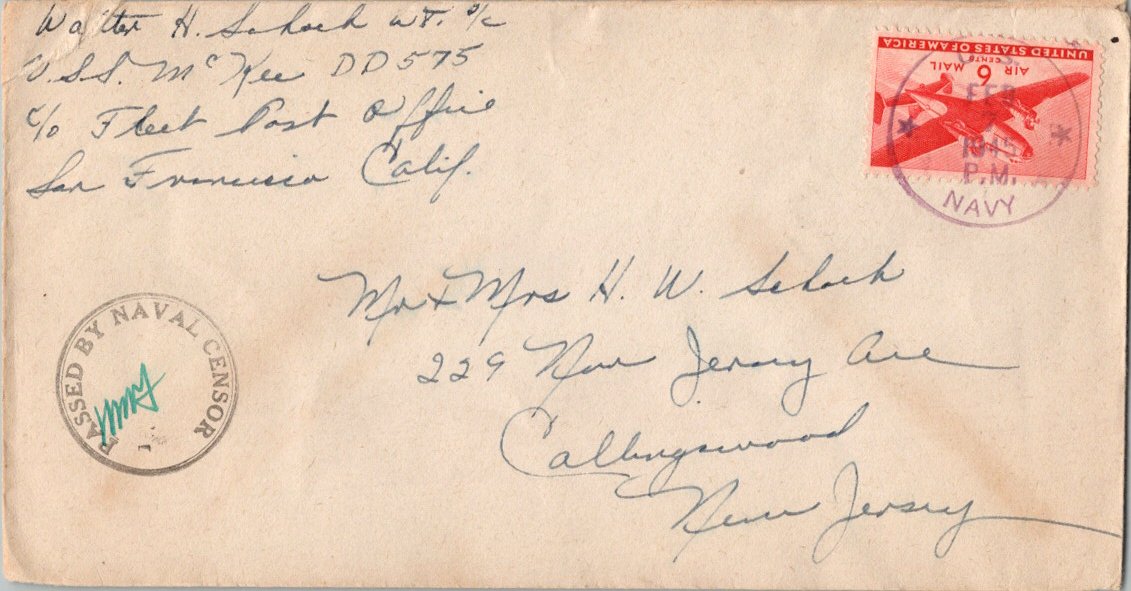 Walter H. Schoch WT. 3/c
U.S.S. McKee DD575
c/o Fleet Post Office
San Francisco Calif.
UNITED STATES OF AMERICA
AIR 6 MAIL
CENTS
U.S.
FEB
1945
P.M.
NAVY
Mr & Mrs H. W. Schoch
229 New Jersey Ave
Collingswood
New Jersey
PASSED BY NAVAL CENSOR